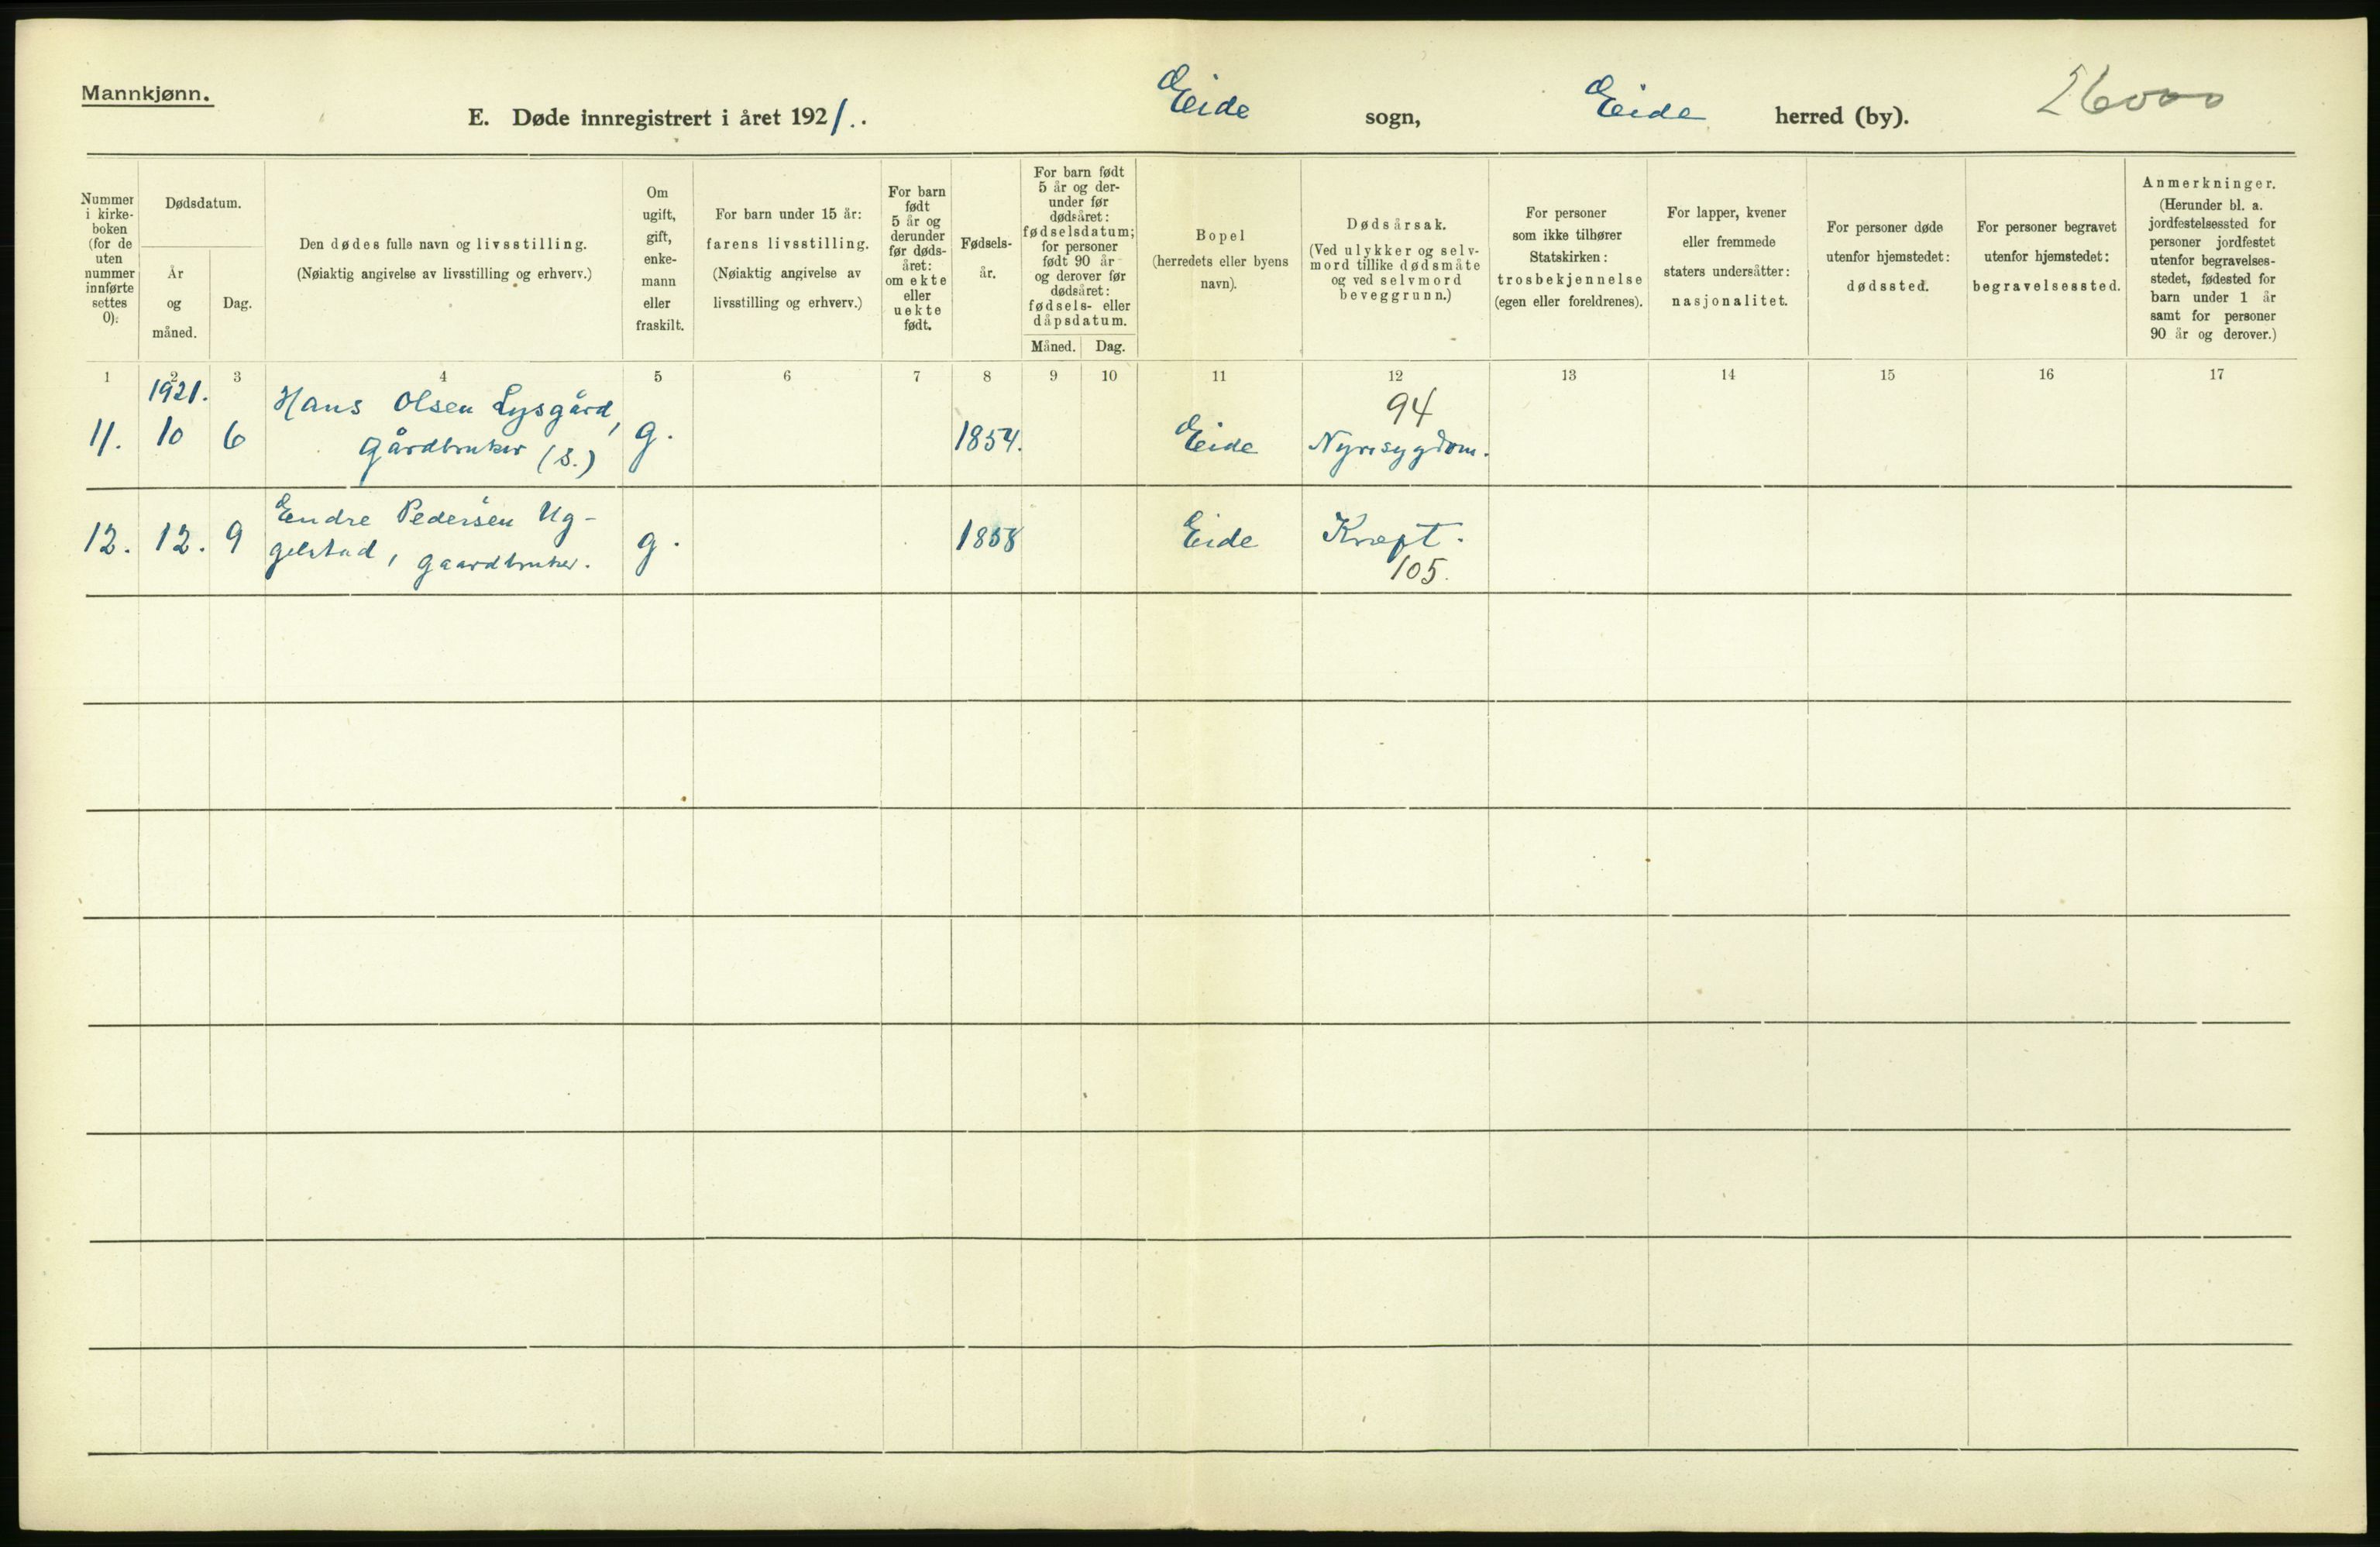 Mannkjønn.
E. Døde innregistrert i året 1921. Eide sogn, Eide herred (by).
Nummer i kirke-boken (for de uten nummer innførte settes 0).
Dødsdatum.
År og måned.
Dag.
Den dødes fulle navn og livsstilling.
(Nøiaktig angivelse av livsstilling og erhverv.)
Om ugift, gift, enke-mann eller fraskilt.
For barn under 15 år:
farens livsstilling.
(Nøiaktig angivelse av livsstilling og erhverv.)
For barn født 5 år og derunder før døds-året: om ekte eller uekte født.
Fødsels-år.
For barn født 5 år og der-under før dødsåret: fødselsdatum; for personer født 90 år og derover før dødsåret: fødsels- eller dåpsdatum.
Måned. Dag.
Bopel
(herredets eller byens navn).
Dødsårsak.
(Ved ulykker og selv-mord tillike dødsmåte og ved selvmord beveggrunn.)
For personer som ikke tilhører Statskirken: trosbekjennelse (egen eller foreldrenes).
For lapper, kvener eller fremmede staters undersåtter: nasjonalitet.
For personer døde utenfor hjemstedet: dødssted.
For personer begravet utenfor hjemstedet: begravelsessted.
Anmerkninger.
(Herunder bl. a. jordfestelsessted for personer jordfestet utenfor begravelses-stedet, fødested for barn under 1 år samt for personer 90 år og derover.)
1 2 3 4 5 6 7 8 9 10 11 12 13 14 15 16 17
1921. Hans Olsen Lysgård, 94
11. 10 6 gårdbruker (S.) g. 1854. Eide Nyresygdom.
Endre Pedersen Ug-
12. 12. 9 gelstad, gaardbruker. g. 1858 Eide Kræft.
105.